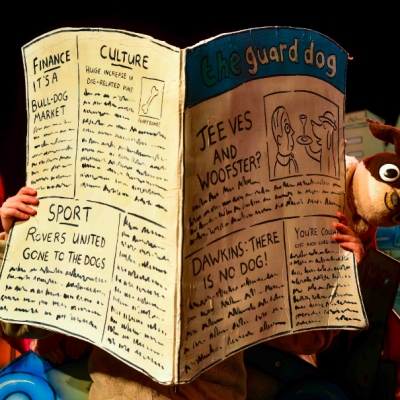 FINANCE
IT'S A
BULL-DOG
MARKET
CULTURE
HUGE INCREASE IN
DOG-RELATED PUNS
SPORT
ROVERS UNITED
GONE TO THE DOGS
the guard dog
JEEVES
AND
WOOFSTER?
DAWKINS: THERE
IS NO DOG!
YOU'RE